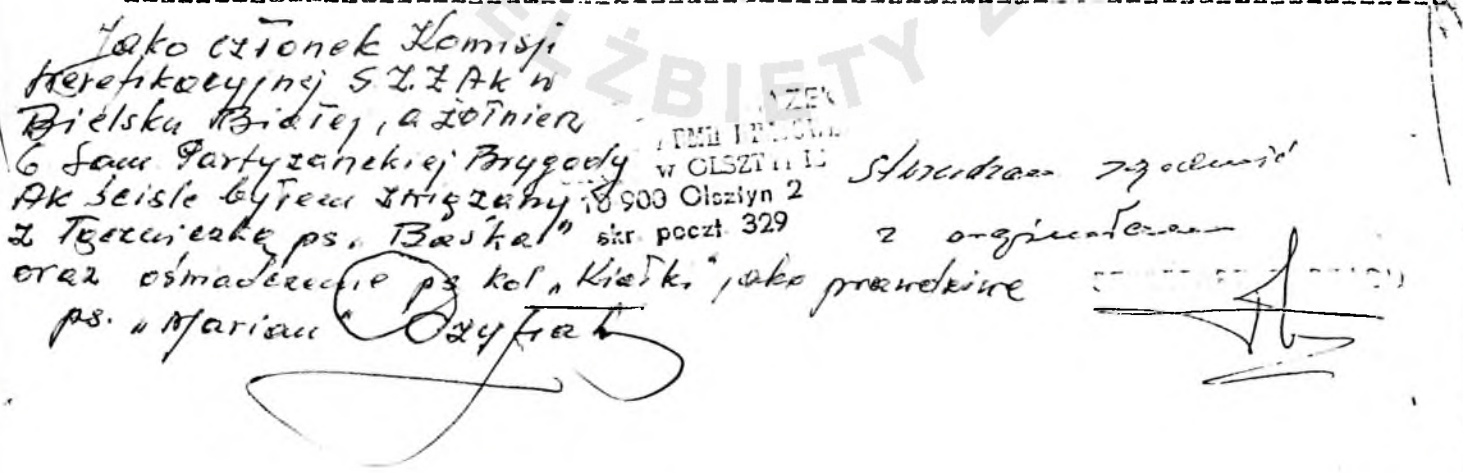 Jako członek Komisji
Werefikacyjnej S.Z.Ż AK w
Bielsku Białej, a żołnierz
6 Sam Partyzanckiej Brygady
AK ściśle byłem związany
z łączniczką ps. "Baśka"
oraz oświadczenie ps kol "Kiełki" jako prawdziwe
ps. "Marian"
w OLSZTYNIE
10 900 Olsztyn 2
skr. poczt. 329
Stwierdzam zgodność
z orginałem
ELŻBIETY